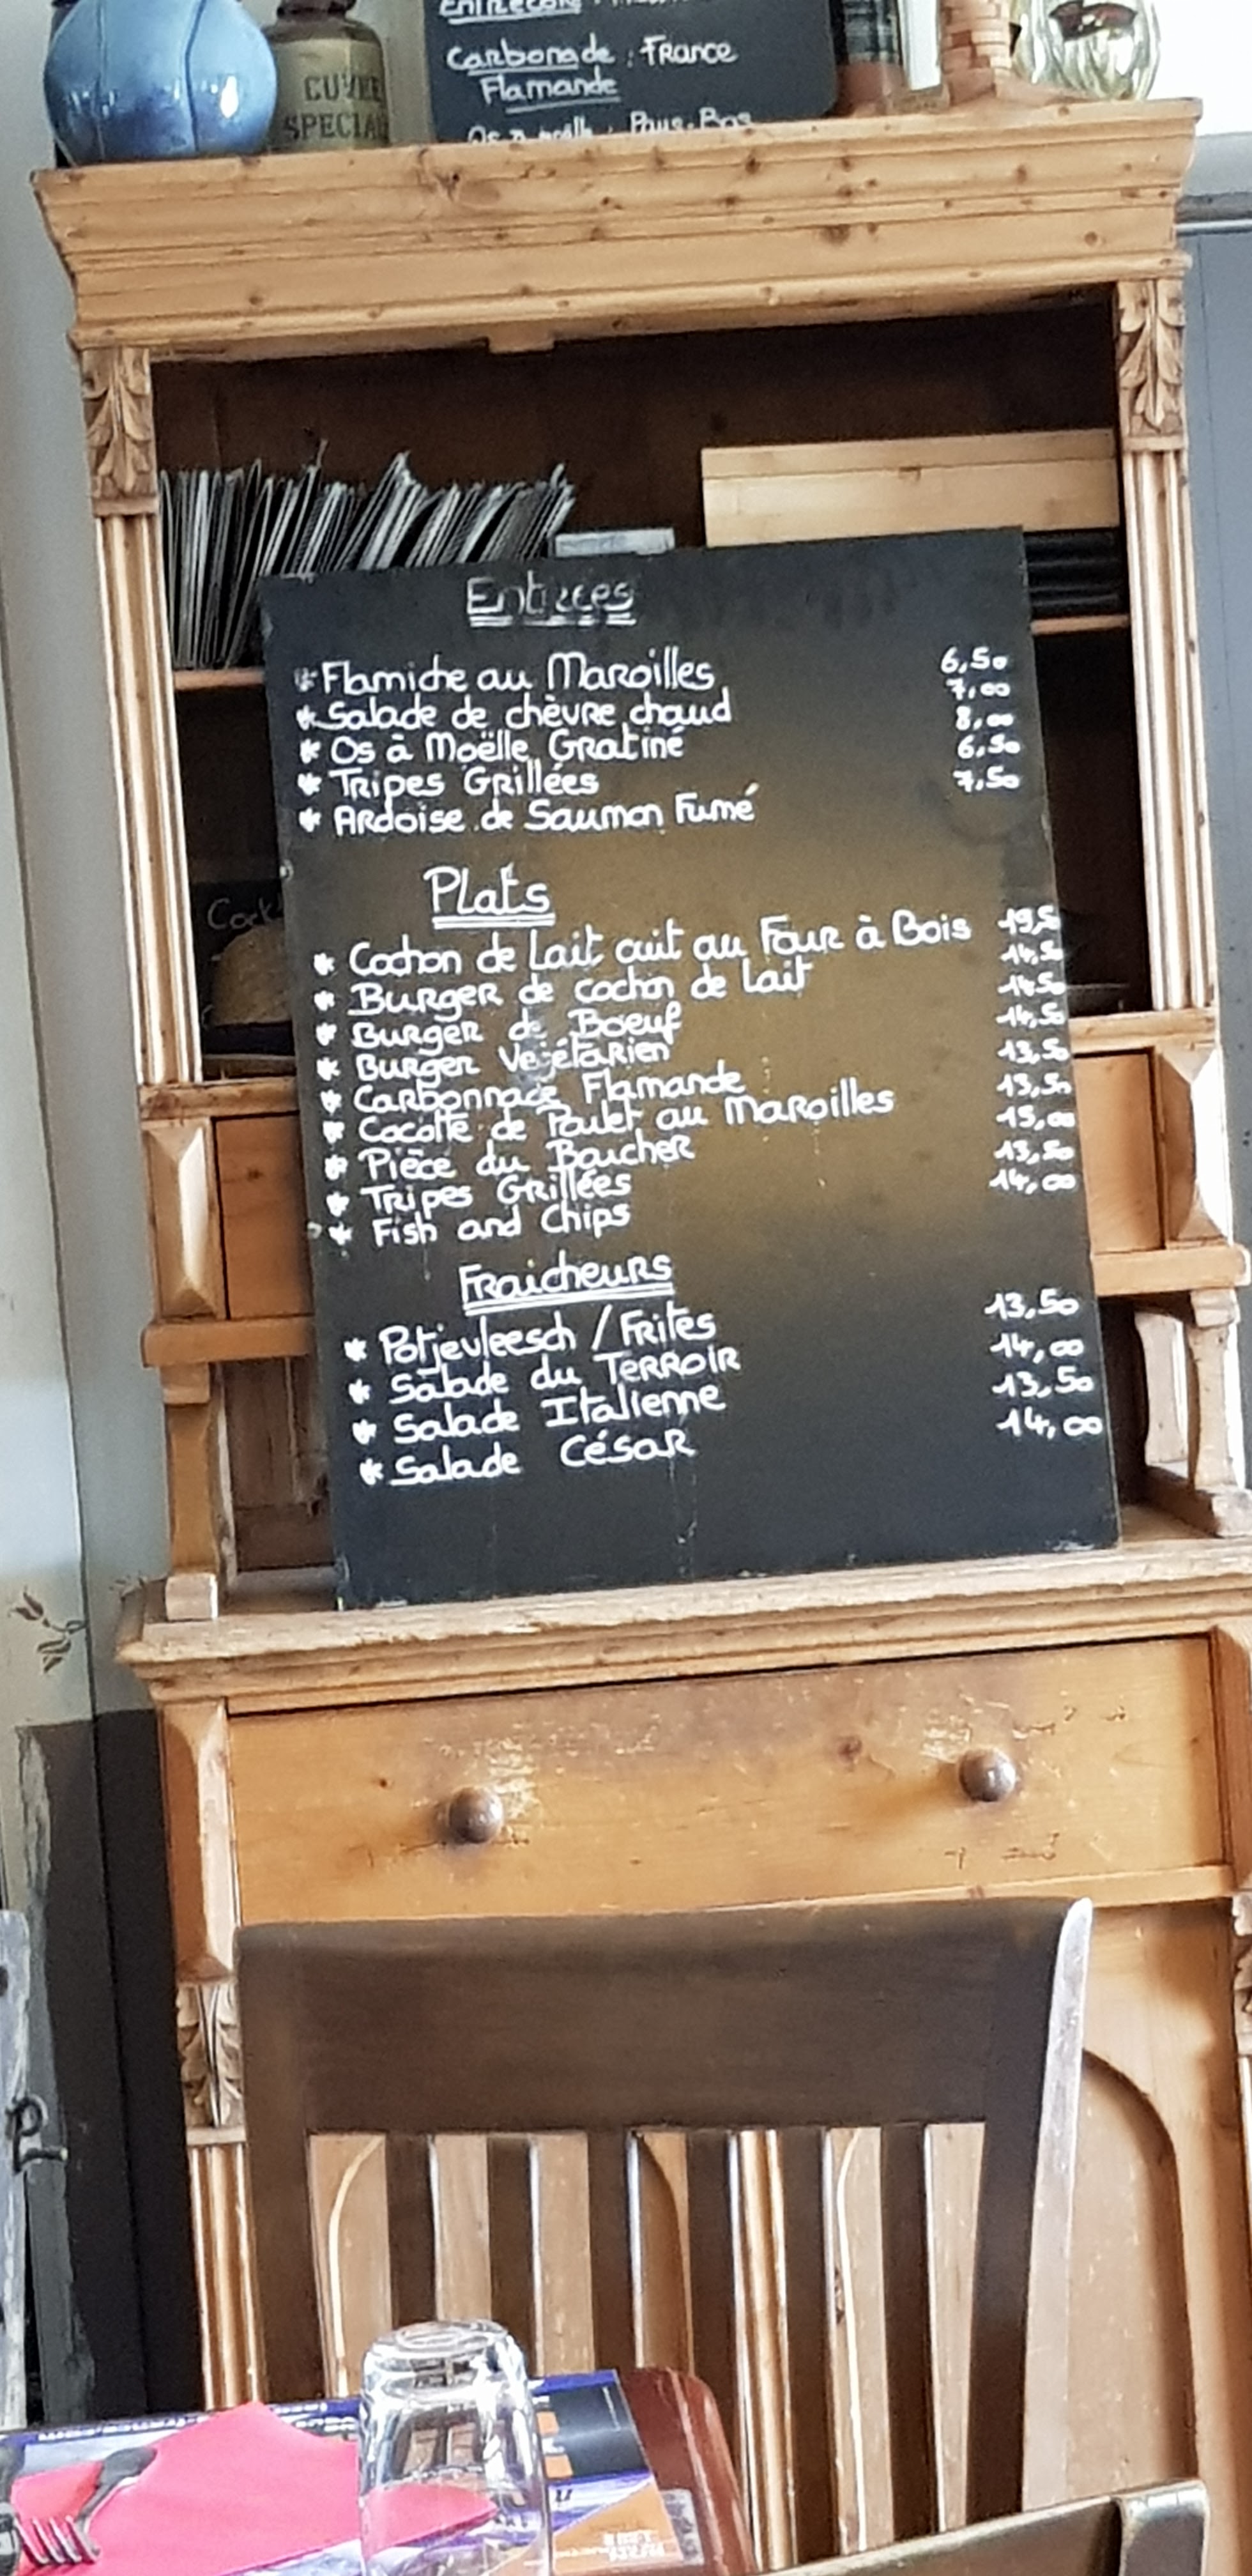 Carbonade : France
Flamande
Pays-Bas
CUVEE
SPECIAL
Entrées
* Flamiche au Maroilles 6,50
* Salade de chèvre chaud 7,00
* Os à Moëlle Gratiné 8,00
* Tripes Grillées 6,50
* Ardoise de Saumon Fumé 7,50
Plats
* Cochon de Lait cuit au Four à Bois 19,5
* Burger de cochon de Lait 14,50
* Burger de Boeuf 14,50
* Burger Végétarien 14,50
* Carbonnade Flamande 13,50
* Cocotte de Poulet au Maroilles 13,50
* Pièce du Boucher 15,00
* Tripes Grillées 13,50
* Fish and Chips 14,00
Fraicheurs
* Potjevleesch / Frites 13,50
* Salade du Terroir 14,00
* Salade Italienne 13,50
* Salade César 14,00